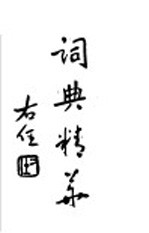 词典精华
右任